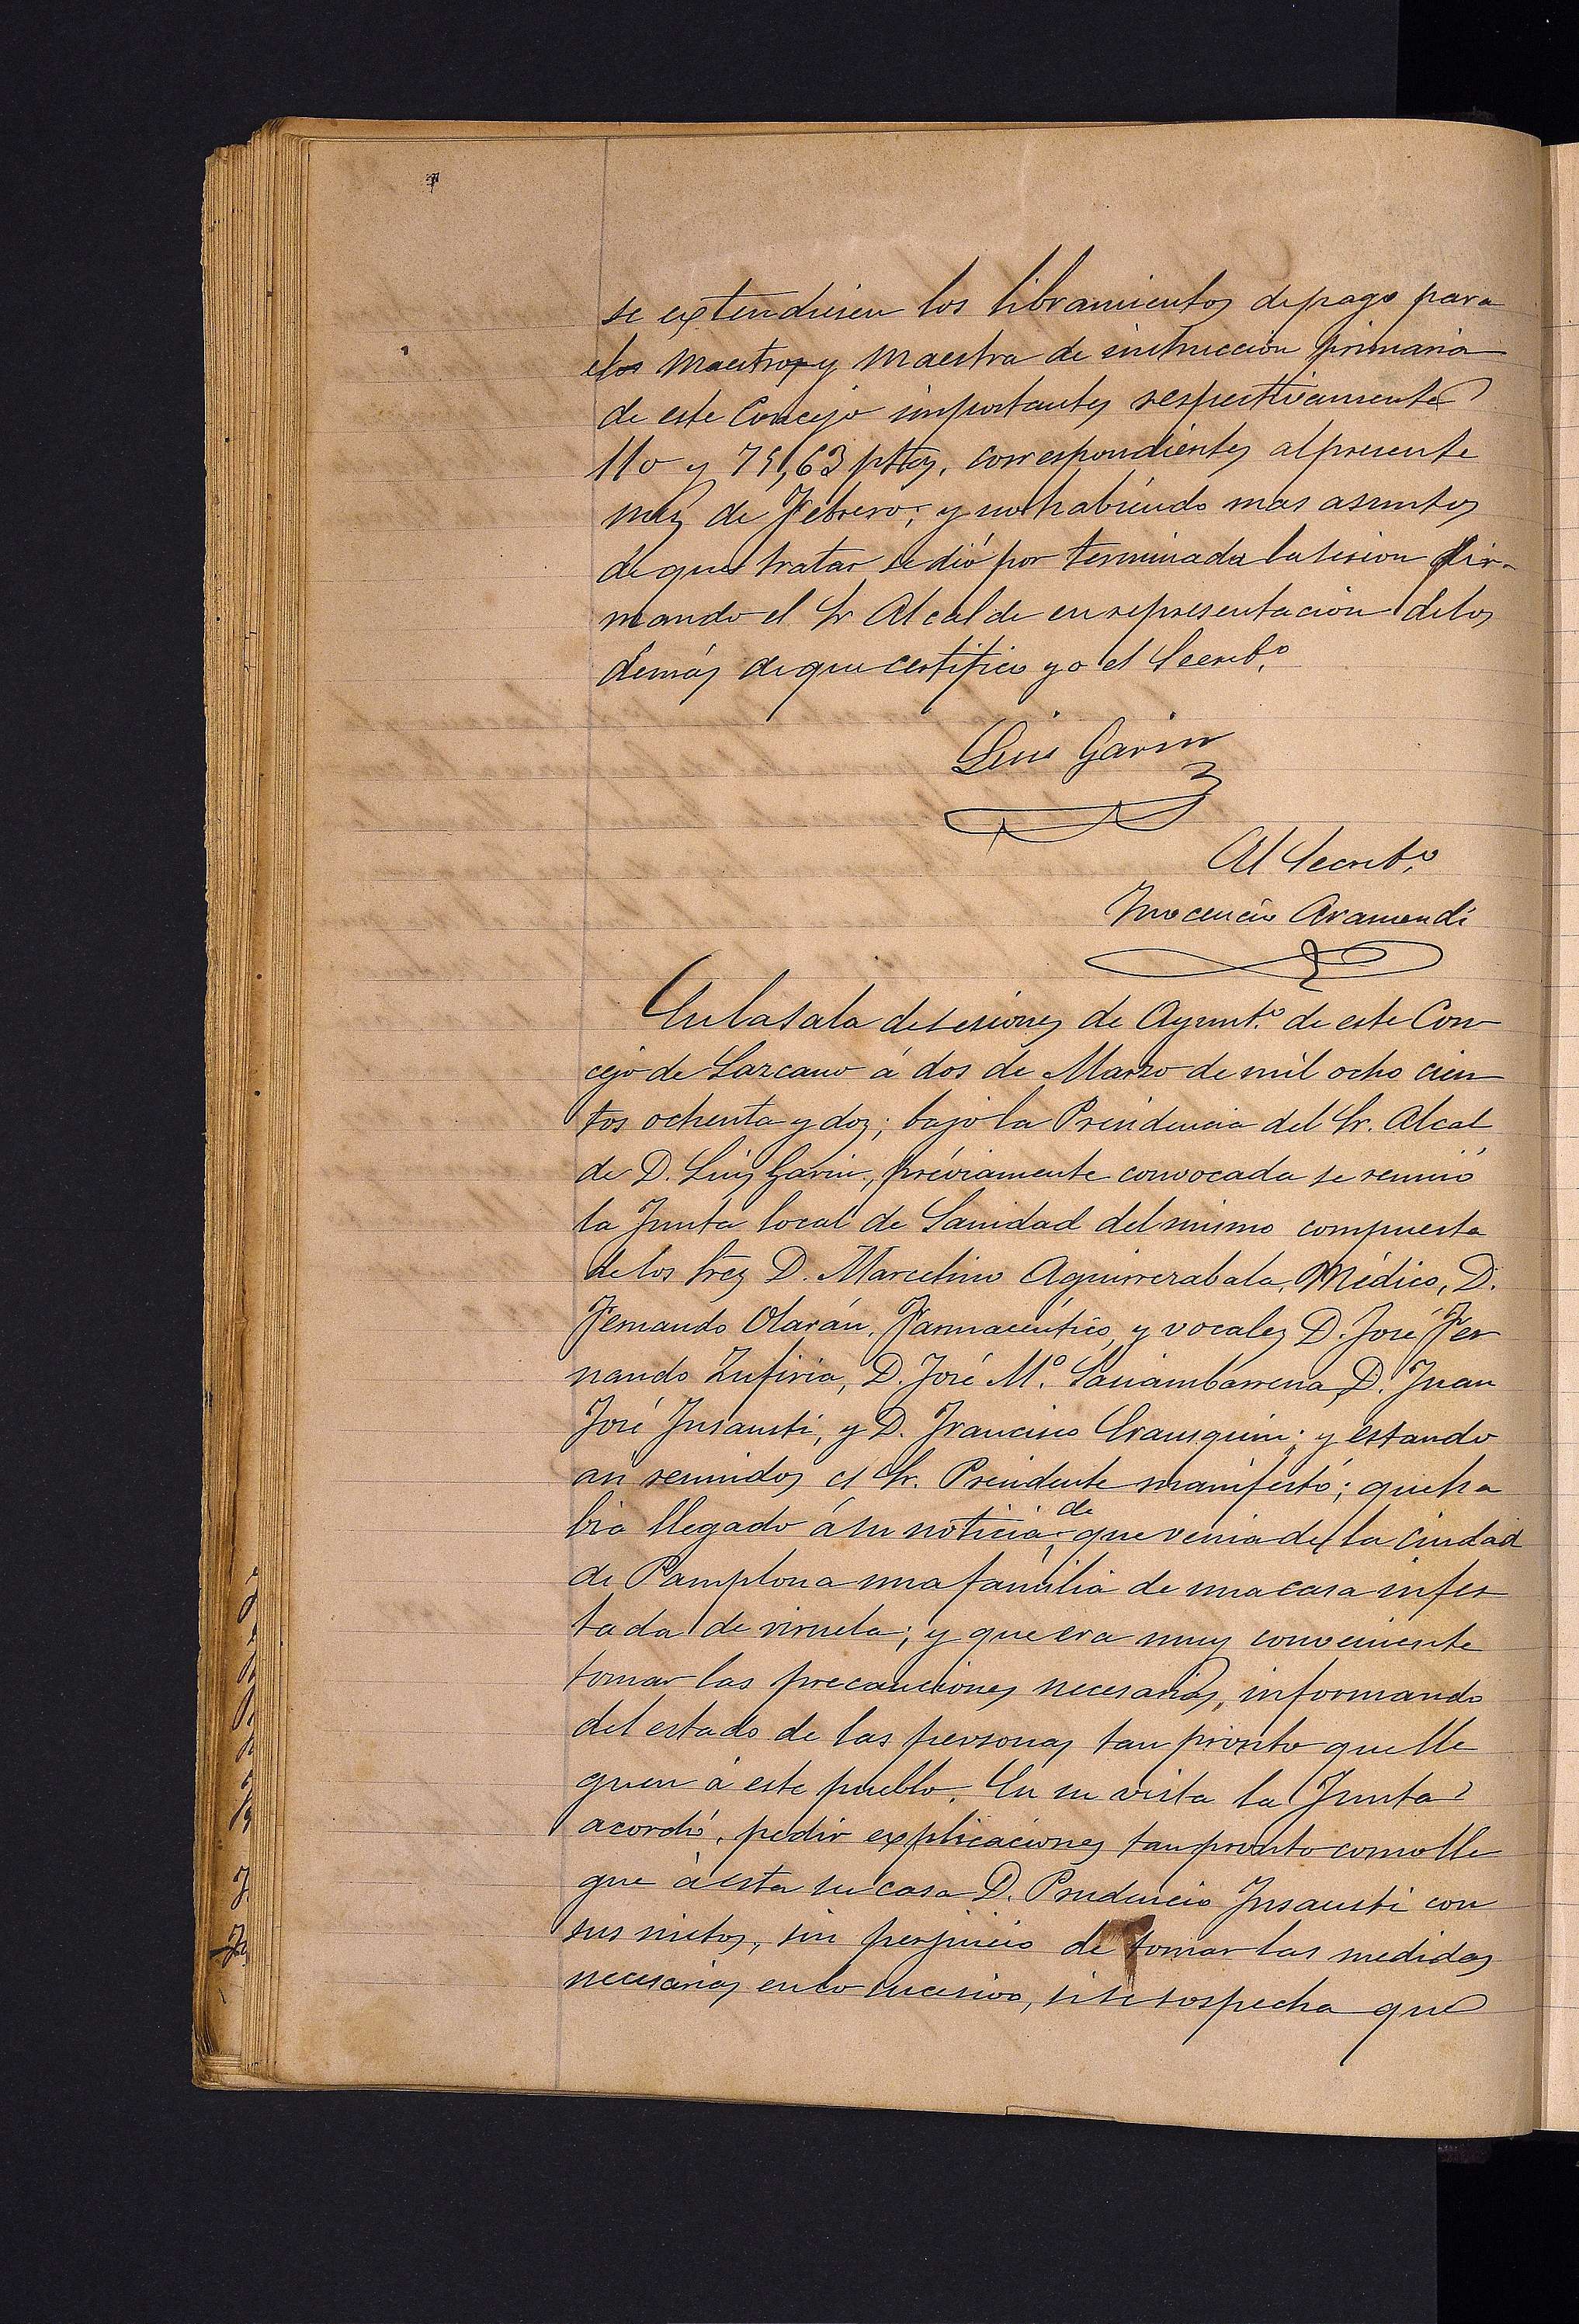 se extendiesen los libramientos de pago para
el Maestro y Maestra de instruccion primaria
de este Concejo importantes respectivamente
110 y 75,63 ptas, correspondientes al presente
mes de Febrero; y no habiendo mas asuntos
de que tratar se dió por terminada la sesion fir-
mando el Sr Alcalde en representacion de los
demás de que certifico yo el Secret.º
Luis Garin
El Secret.º
Inocencio Aramendi
En la sala de sesiones de Ayunt.º de este Con-
cejo de Lazcano á dos de Marzo de mil ocho cien
tos ochenta y dos; bajo la Presidencia del Sr. Alcal
de D. Luis Garin, préviamente convocada se reunió
la Junta local de Sanidad del mismo compuesta
de los Sres D. Marcelino Aguirrezabala, Médico, D.
Fernando Olarán, Farmacéutico, y vocales D. José Fer
nando Zufiria, D. José M.ª Sarriambarrena, D. Juan
José Insausti, y D. Francisco Erausquin; y estando
asi reunidos el Sr. Presidente manifestó; que ha
bia llegado á su noticia de que venia de la Ciudad
de Pamplona una familia de una casa infes
tada de viruela; y que era muy conveniente
tomar las precauciones necesarias, informando
del estado de las personas tan pronto que lle
guen á este pueblo. En su vista la Junta
acordó, pedir explicaciones tan pronto como lle
gue á esta su casa D. Prudencio Insausti con
sus nietos, sin perjuicio de tomar las medidas
necesarias en lo sucesivo, si se sospecha que